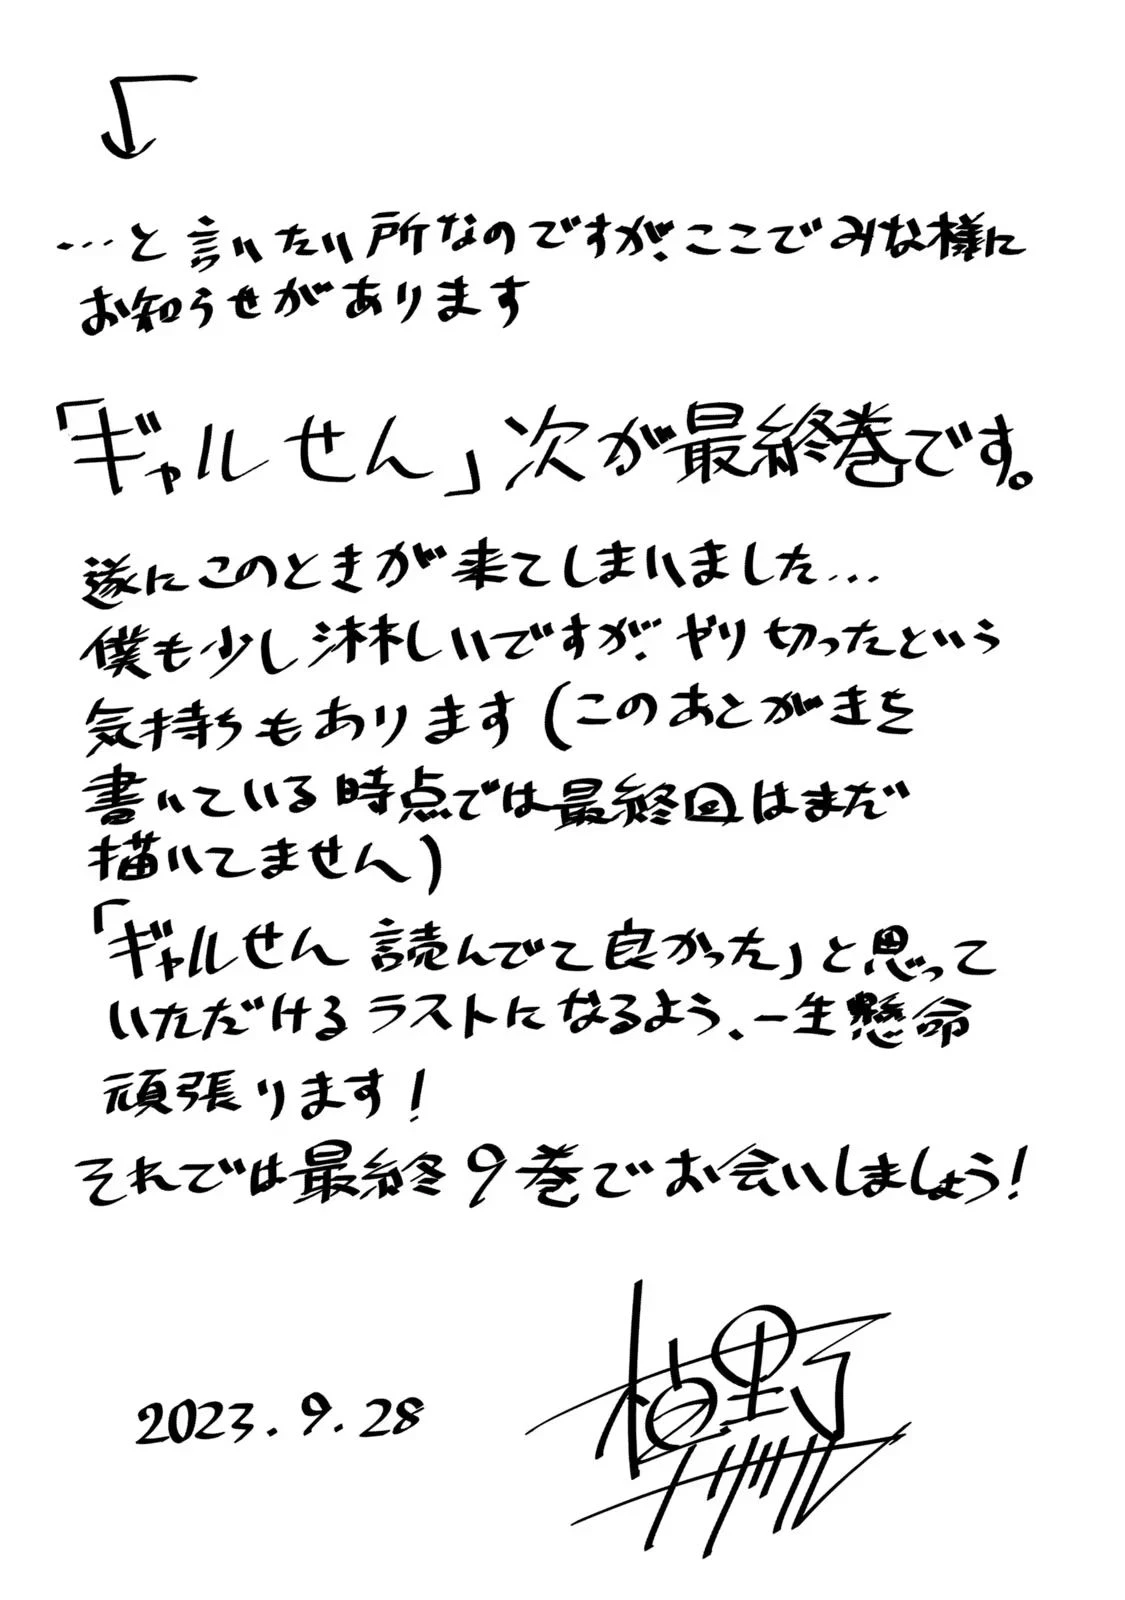 …と言いたい所なのですが、ここでみな様に
お知らせがあります
「ギャルせん」次が最終巻です。
遂にこのときが来てしまいました…
僕も少し淋しいですが、やり切ったという
気持ちもあります(このあとがきを
書いている時点では最終回はまだ
描いてません)
「ギャルせん読んでて良かった」と思って
いただけるラストになるよう、一生懸命
頑張ります!
それでは最終9巻でお会いしましょう!
2023.9.28